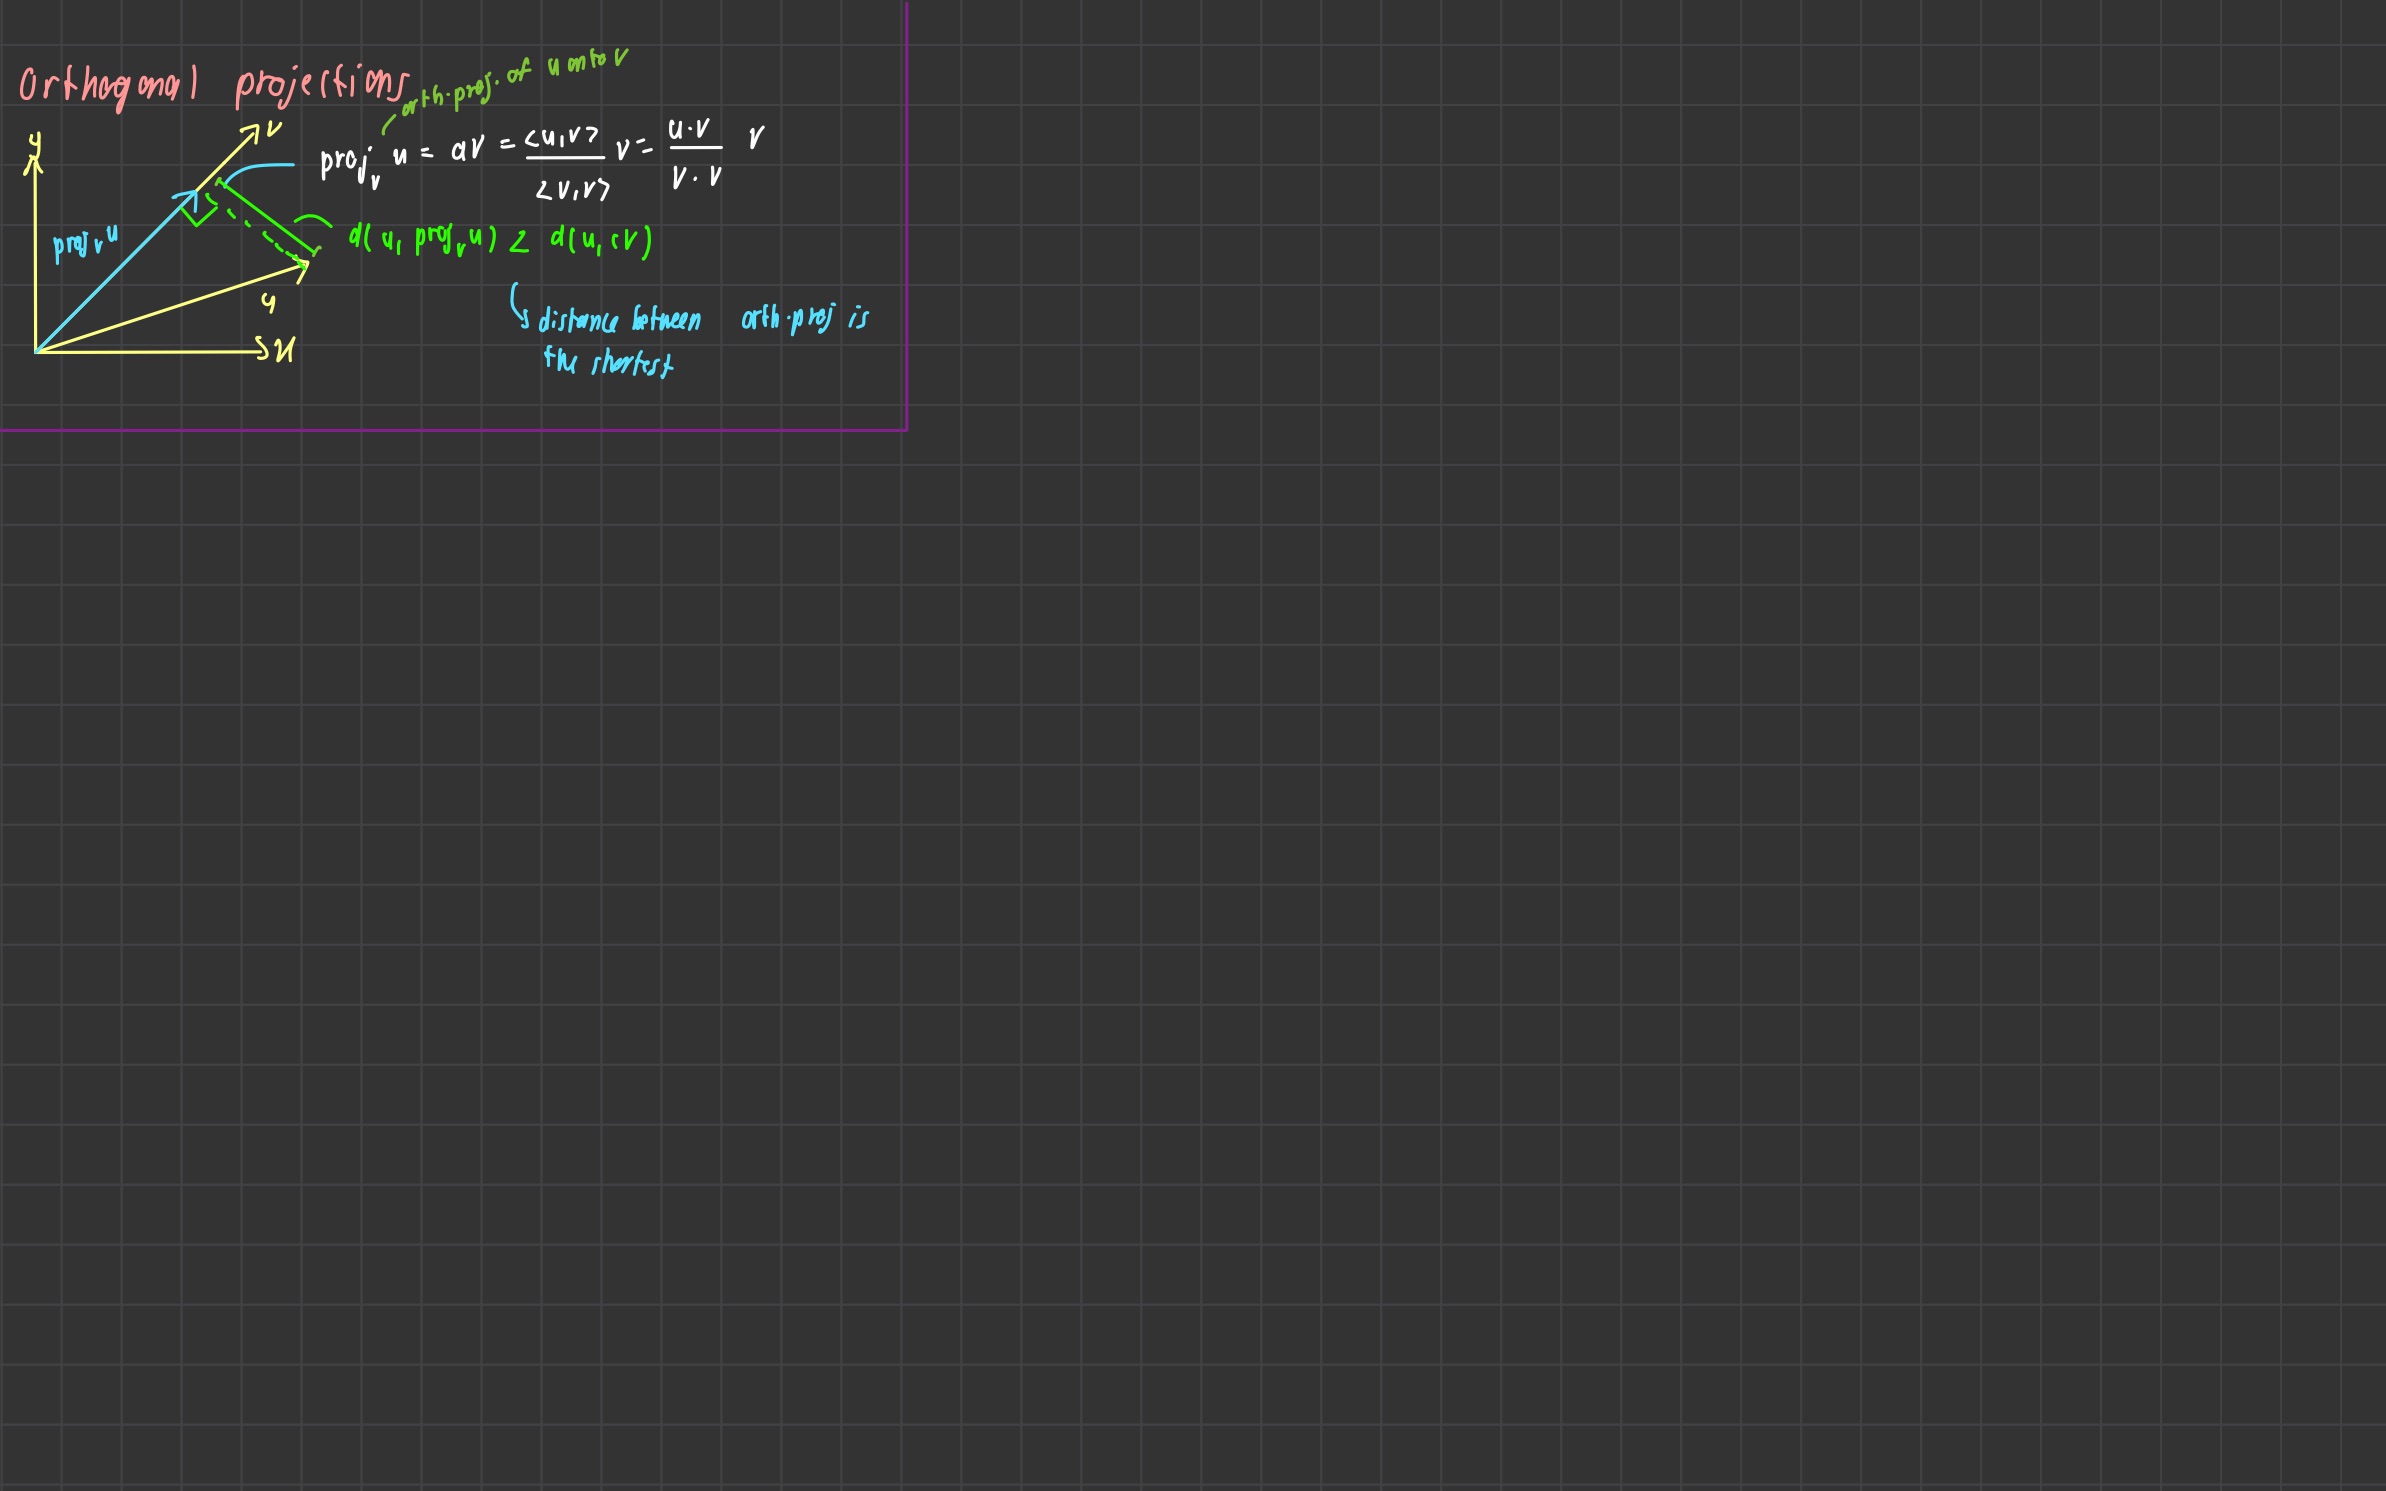 Orthogonal projections
orth. proj. of u onto v
y
v
proj_v u = av = <u,v> / <v,v> v = u·v / v·v v
proj_v u
d(u, proj_v u) < d(u, cv)
u
x
distance between orth. proj is
the shortest